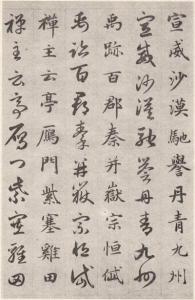 宣威沙漠馳譽丹青九州
宣威沙漠馳譽丹青九州
禹跡百郡秦并嶽宗恒岱
禹跡百郡秦并嶽宗恒岱
禪主云亭鴈門紫塞雞田
禪主云亭鴈門紫塞雞田